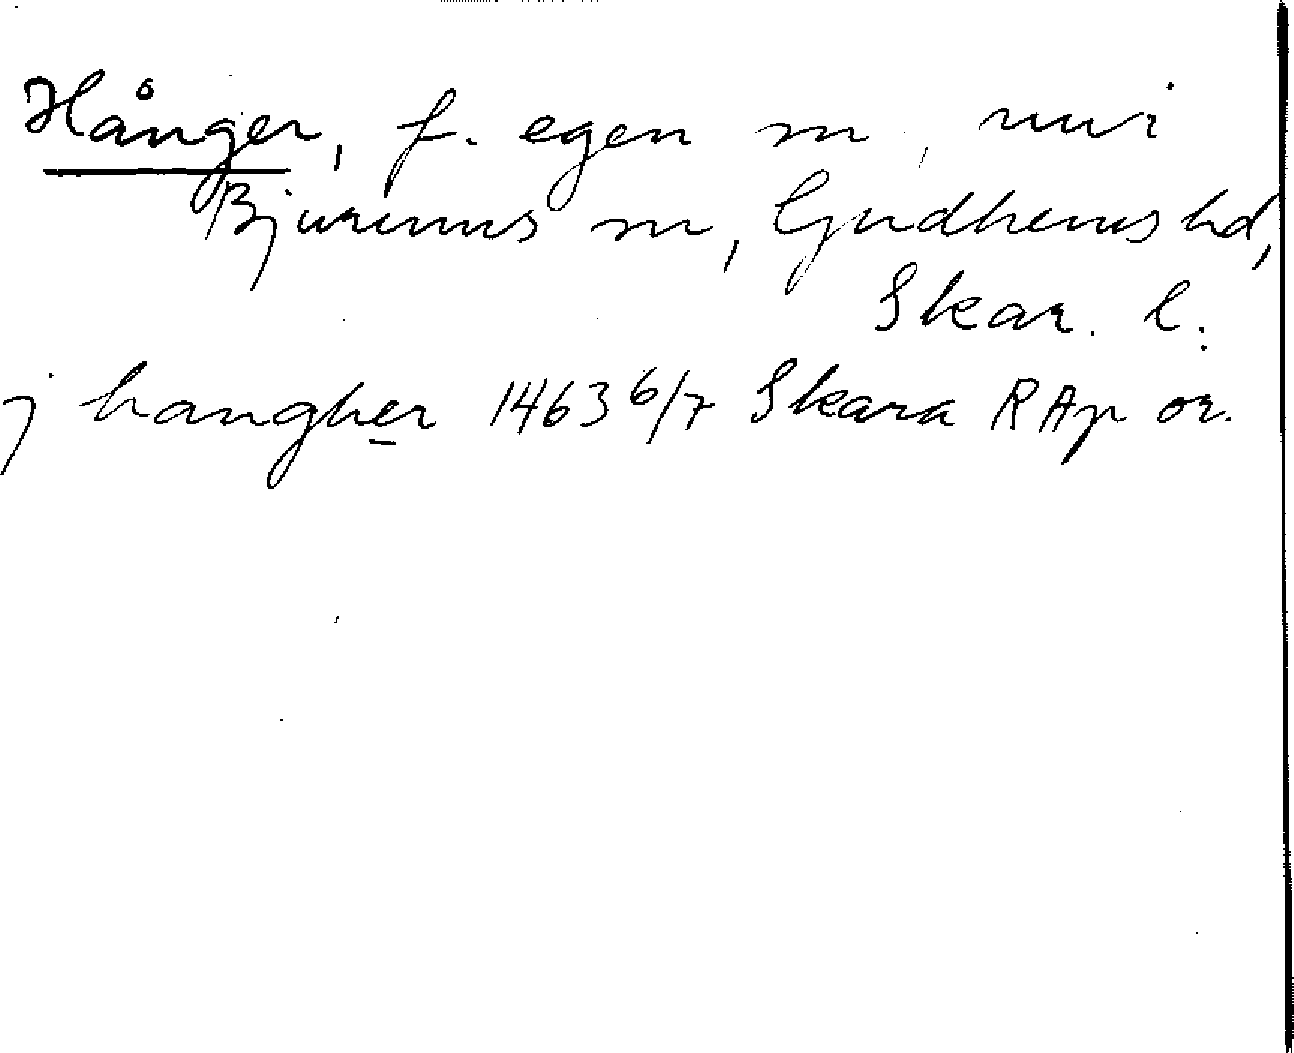 Hånger, f. egen sn, nu i
Bjurums sn, Gudhems hd,
Skar. l.
j hangher 1463 6/7 Skara RAp or.